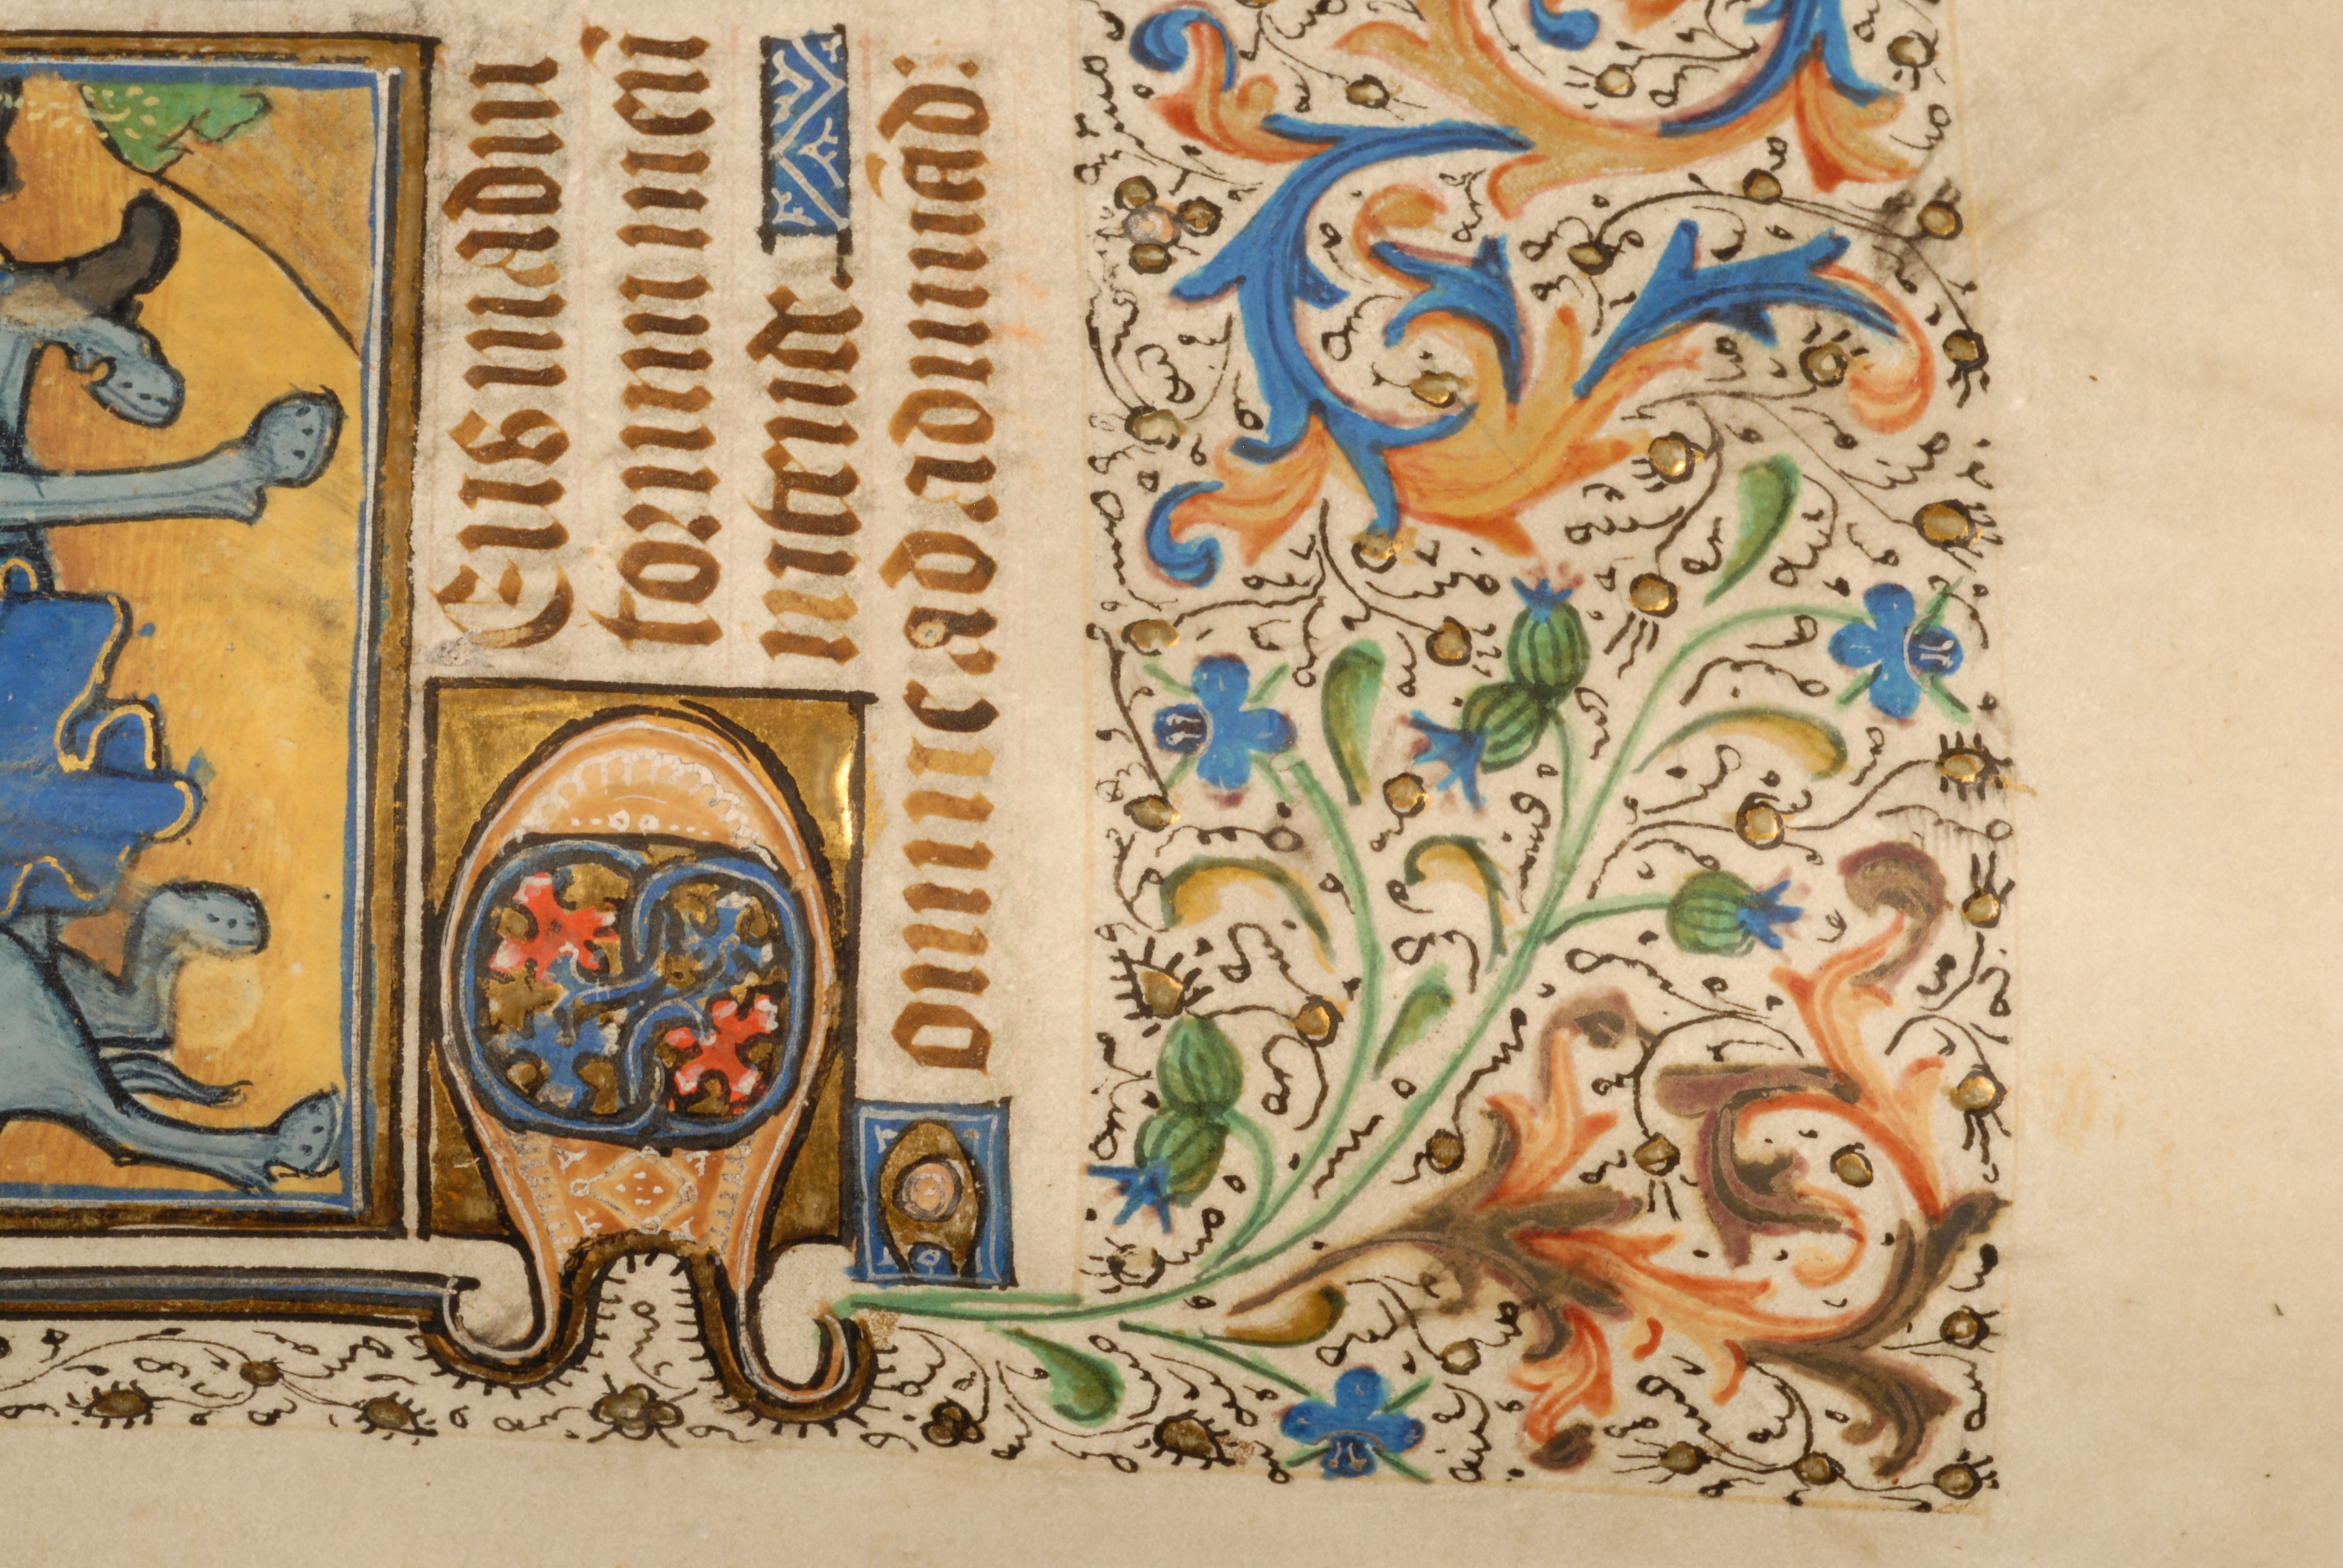 DEus in adiu
torium meū
intende.
Domine ad adiuuād: